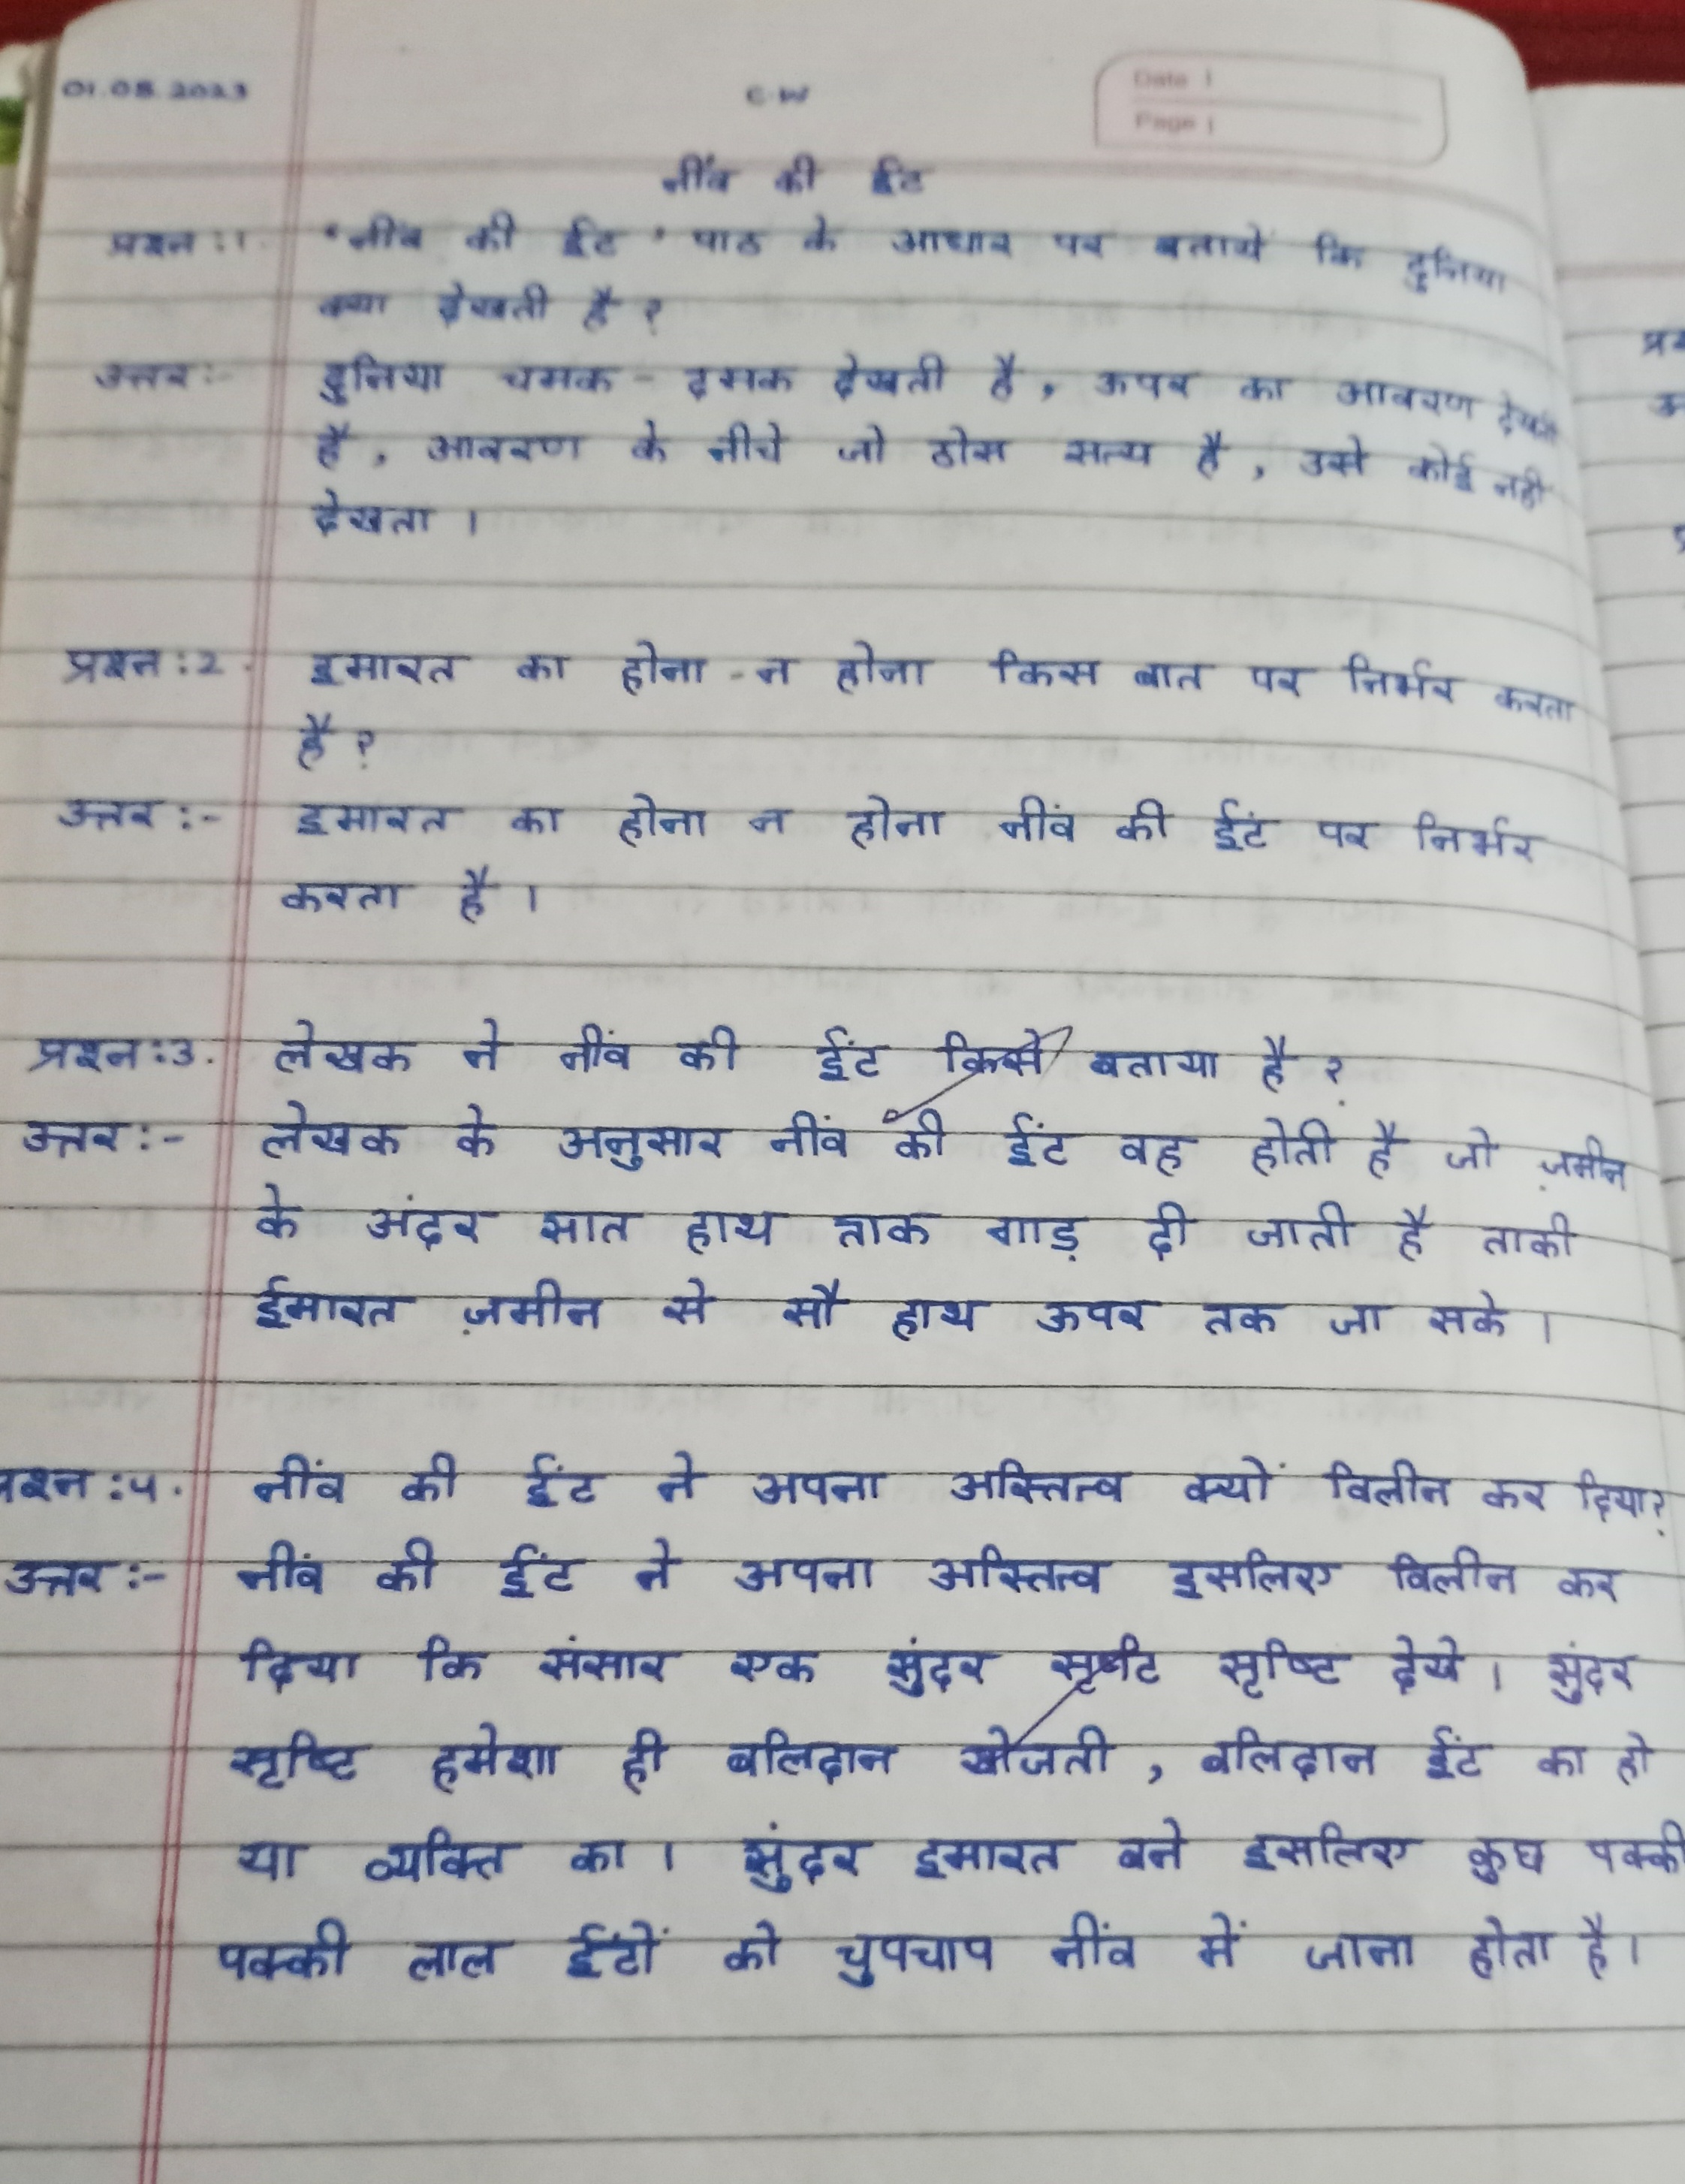 01.05.2023
C.W
Date |
Page |
नींव की ईंट
प्रश्न :1. 'नींव की ईंट' पाठ के आधार पर बतायें कि दुनिया
क्या देखती है ?
उत्तर :- दुनिया चमक - दमक देखती है, ऊपर का आवरण देखती
है, आवरण के नीचे जो ठोस सत्य है, उसे कोई नही
देखता ।
प्रश्न :2. इमारत का होना - न होना किस बात पर निर्भर करता
है ?
उत्तर :- इमारत का होना न होना नींव की ईंट पर निर्भर
करता है ।
प्रश्न :3. लेखक ने नींव की ईंट किसे बताया है ?
उत्तर :- लेखक के अनुसार नींव की ईंट वह होती है जो ज़मीन
के अंदर सात हाथ ताक गाड़ दी जाती है ताकी
ईमारत ज़मीन से सौ हाथ ऊपर तक जा सके ।
प्रश्न :4. नींव की ईंट ने अपना अस्तित्व क्यों विलीन कर दिया?
उत्तर :- नींव की ईंट ने अपना अस्तित्व इसलिए विलीन कर
दिया कि संसार एक सुंदर सृष्टि देखे । सुंदर
सृष्टि हमेशा ही बलिदान खोजती , बलिदान ईंट का हो
या व्यक्ति का । सुंदर इमारत बने इसलिए कुछ पक्की
पक्की लाल ईंटों को चुपचाप नींव में जाना होता है ।